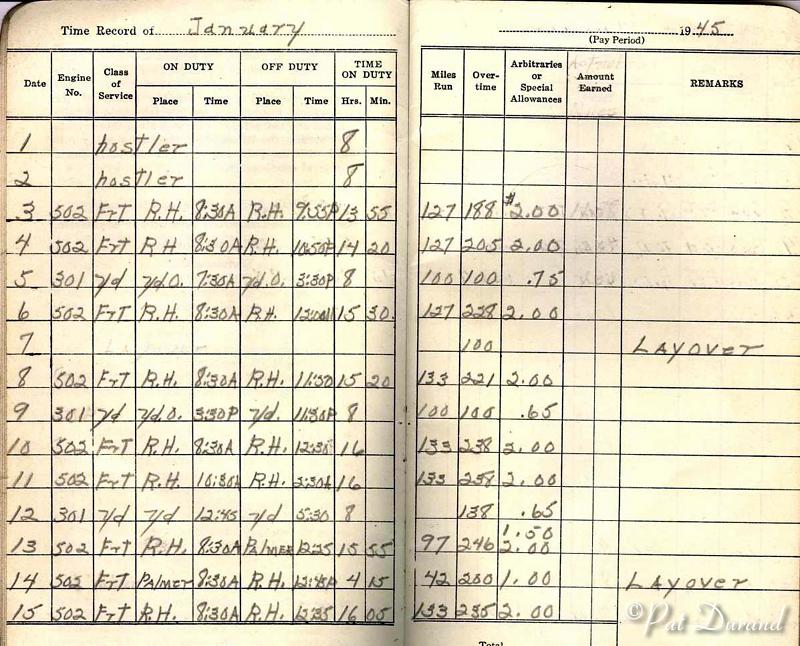 Time Record of January 1945
(Pay Period)
Date Engine No. Class of Service ON DUTY OFF DUTY TIME ON DUTY Miles Run Over-time Arbitraries or Special Allowances Amount Earned REMARKS
Place Time Place Time Hrs. Min.
1 hostler 8
2 hostler 8
3 502 FrT R.H. 8:30A R.H. 9:55P 13 55 127 188 $2.00
4 502 FrT R H 8:30A R.H. 10:50P 14 20 127 205 2.00
5 301 yd yd.O. 7:30A yd.O. 3:30P 8 100 100 .75
6 502 FrT R.H. 8:30A R.H. 12:00 15 30 127 228 2.00
7 100 LAYOVER
8 502 FrT R.H. 8:30A R.H. 11:50 15 20 133 221 2.00
9 301 yd yd.O. 3:30P yd. 11:30P 8 100 100 .65
10 502 FrT R.H. 8:30A R.H. 12:30 16 133 238 2.00
11 502 FrT R.H. 10:30A R.H. 2:30A 16 133 238 2.00
12 301 yd yd 12:45 yd 5:30 8 138 .65
13 502 FrT R.H. 8:30A PALMER 12:25 15 55 97 246 1.50 2.00
14 502 FrT PALMER 8:30A R.H. 12:45P 4 15 42 200 1.00 LAYOVER
15 502 FrT R.H. 8:30A R.H. 12:35 16 05 133 235 2.00
Total
©Pat Durand